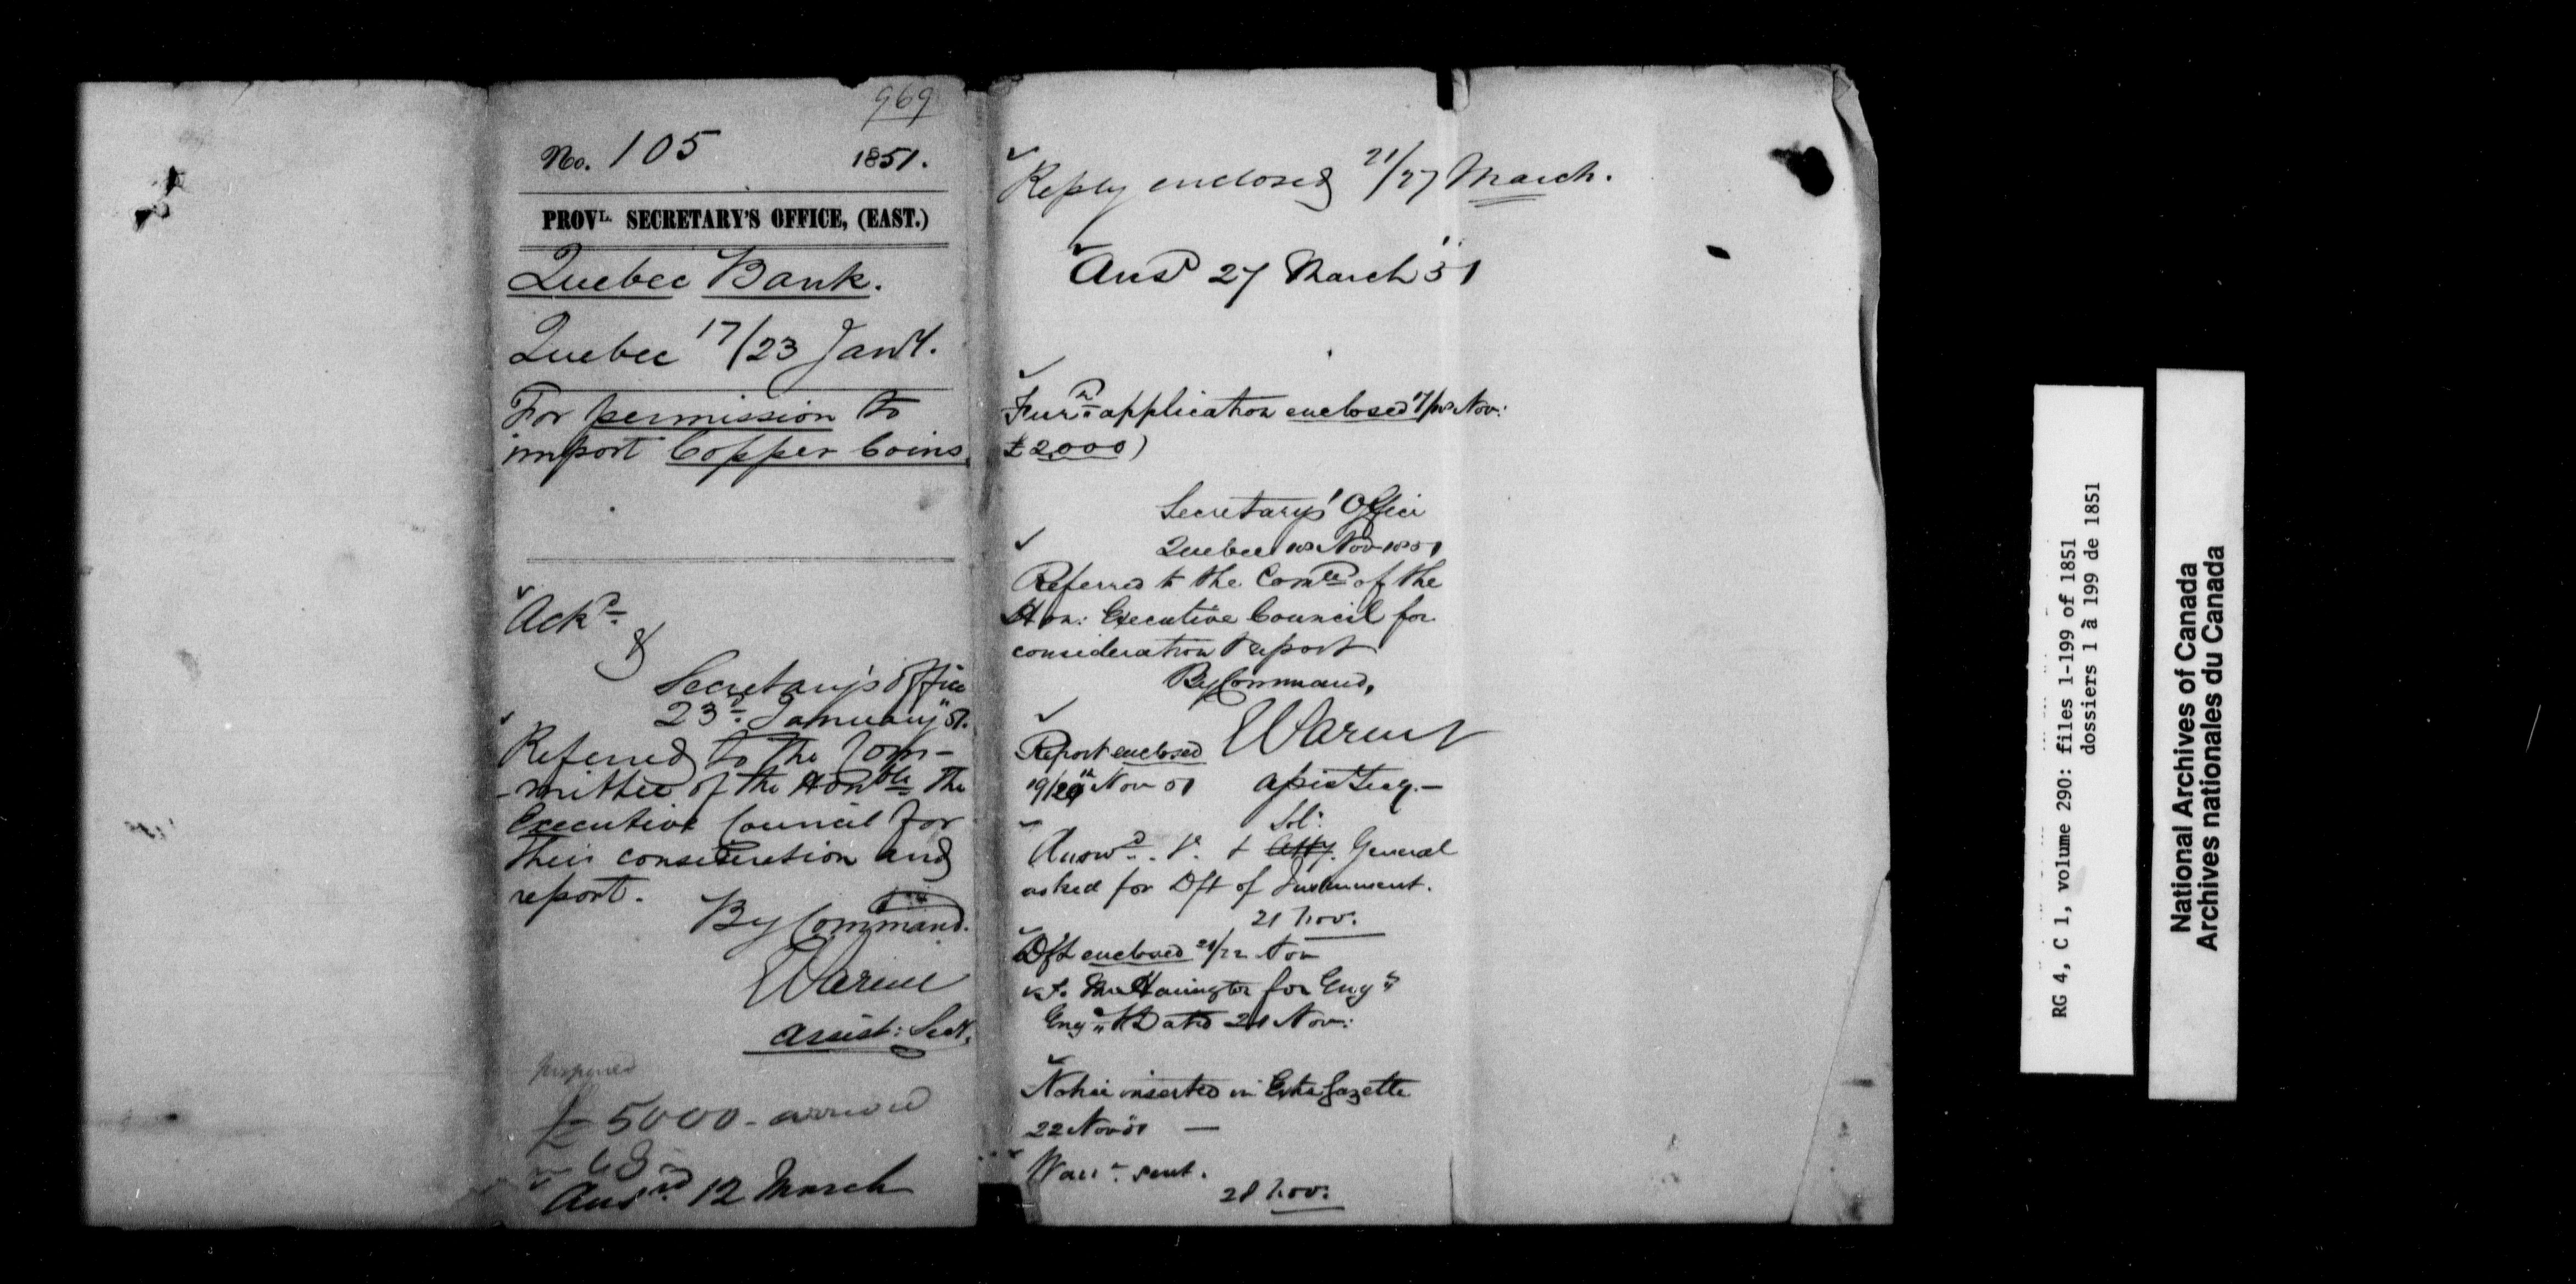 969
No. 105 1851.
PROVL. SECRETARY'S OFFICE, (EAST.)
Quebec Bank.
Quebec 17/23 Jany.
For permission to
import Copper Coins.
Ackd.
Secretary's Office
23d. January 51.
Referred to the Com-
-mittee of the Honble. the
Executive Council for
their consideration and
report.
By Command.
EParent
Assist: Secy.
£5000 - arrived
Ansd. 12 March
Reply enclosed 21/27 March.
Ansd 27 March 51
Furr. application enclosed 17/18 Nov:
£2000)
Secretary's Office
Quebec 18 Nov 1851
Referred to the Comtee of the
Hon: Executive Council for
consideration & report
By Command,
EParent
Report enclosed
19/20th Nov 51 Assist Secy.—
Answd. & Sol: Atty. General
asked for Dft of Instrument.
21 Nov.
Dft enclosed 21/22 Nov
Mr Harington for Eng
Engd. Dated 21 Nov:
Notice inserted in Extra Gazette
22 Nov 51 —
Warrt. sent.
28 Nov:
RG 4, C 1, volume 290: files 1-199 of 1851
dossiers 1 à 199 de 1851
National Archives of Canada
Archives nationales du Canada